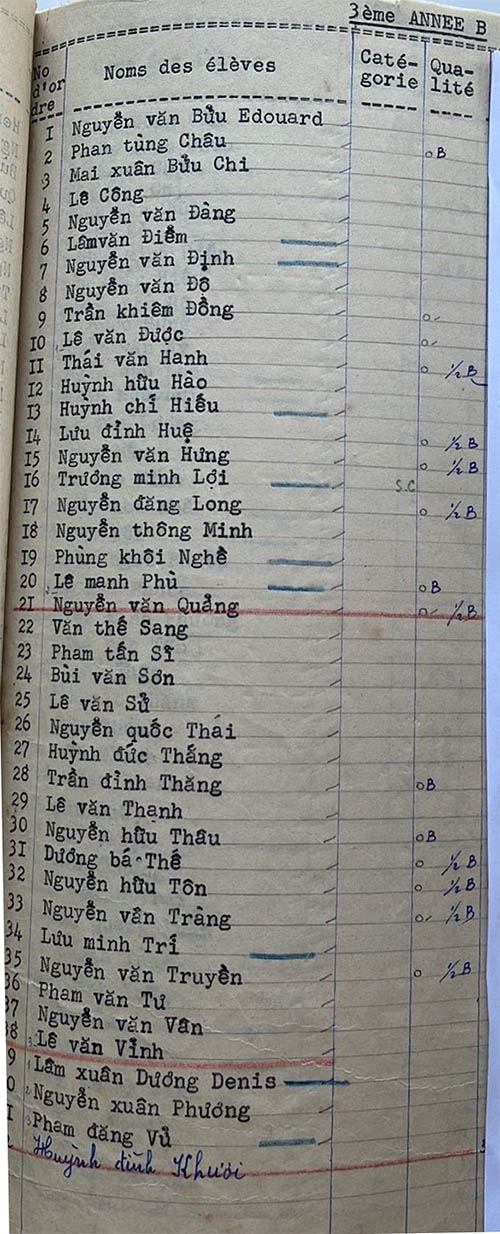 3ème ANNEE B
No d'or dre Noms des élèves Caté- gorie Qua- lité
1 Nguyễn văn Bửu Edouard
2 Phan tùng Châu o B
3 Mai xuân Bửu Chi
4 Lê Công
5 Nguyễn văn Đàng
6 Lâmvăn Điểm
7 Nguyễn văn Định
8 Nguyễn văn Độ
9 Trần khiêm Đồng o
10 Lê văn Được o
11 Thái văn Hanh o ½ B
12 Huỳnh hữu Hào
13 Huỳnh chí Hiếu
14 Lưu đình Huệ o ½ B
15 Nguyễn văn Hưng o ½ B
16 Trương minh Lợi S.C
17 Nguyễn đăng Long o ½ B
18 Nguyễn thông Minh
19 Phùng khôi Nghê
20 Lê manh Phù o B
21 Nguyễn văn Quảng o ½ B
22 Văn thế Sang
23 Pham tấn Sĩ
24 Bùi văn Sơn
25 Lê văn Sử
26 Nguyễn quốc Thái
27 Huỳnh đức Thắng
28 Trần đình Thăng o B
29 Lê văn Thạnh
30 Nguyễn hữu Thâu o B
31 Dương bá Thế o ½ B
32 Nguyễn hữu Tôn o ½ B
33 Nguyễn văn Tràng o ½ B
34 Lưu minh Trí
35 Nguyễn văn Truyền o ½ B
36 Pham văn Tư
37 Nguyễn văn Vân
38 Lê văn Vĩnh
9 1 Lâm xuân Dương Denis
0 2 Nguyễn xuân Phương
1 3 Pham đăng Vũ
Huỳnh đình Khươi